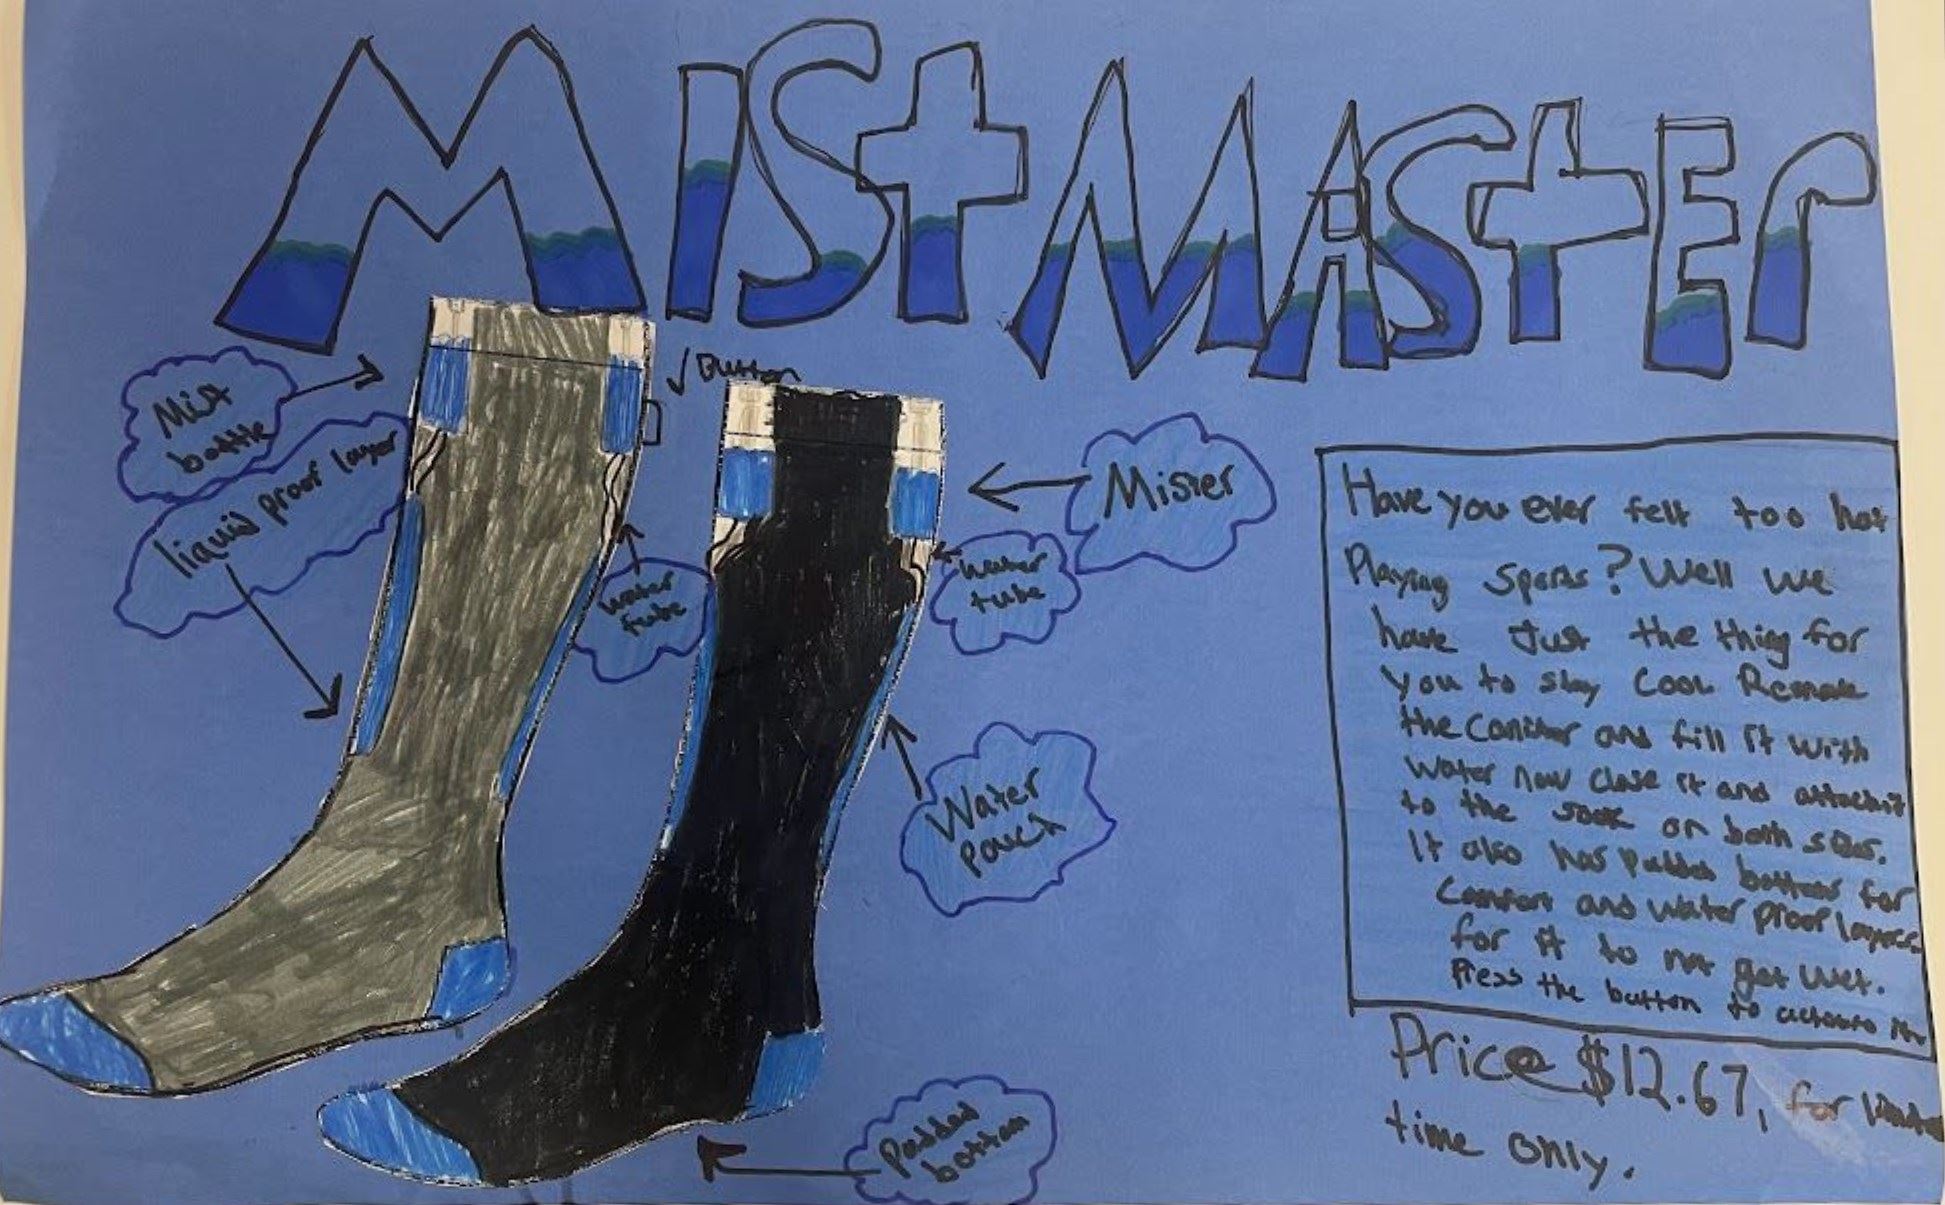 Mist Master
Mist
bottle
liquid proof layer
Button
water
tube
Mister
water
tube
Water
pouch
Padded
bottom
Have you ever felt too hot
Playing sports? Well we
have Just the thing for
you to stay Cool Remove
the Canister and fill it with
Water now close it and attach it
to the sock on both sides.
It also has padded bottoms for
Comfort and water proof layers
for it to not get wet.
Press the button to activate it
Price $12.67, for limited
time only.